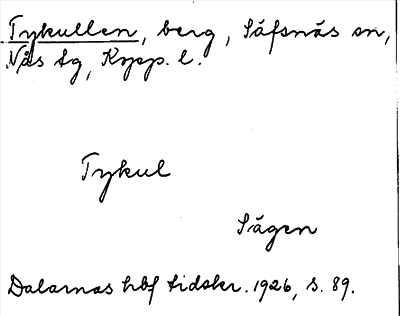 Tykullen, berg, Säfsnäs sn,
Nås tg, Kopp. l.
Tykul
Sågen
Dalarnas hbf tidskr. 1926, s. 89.